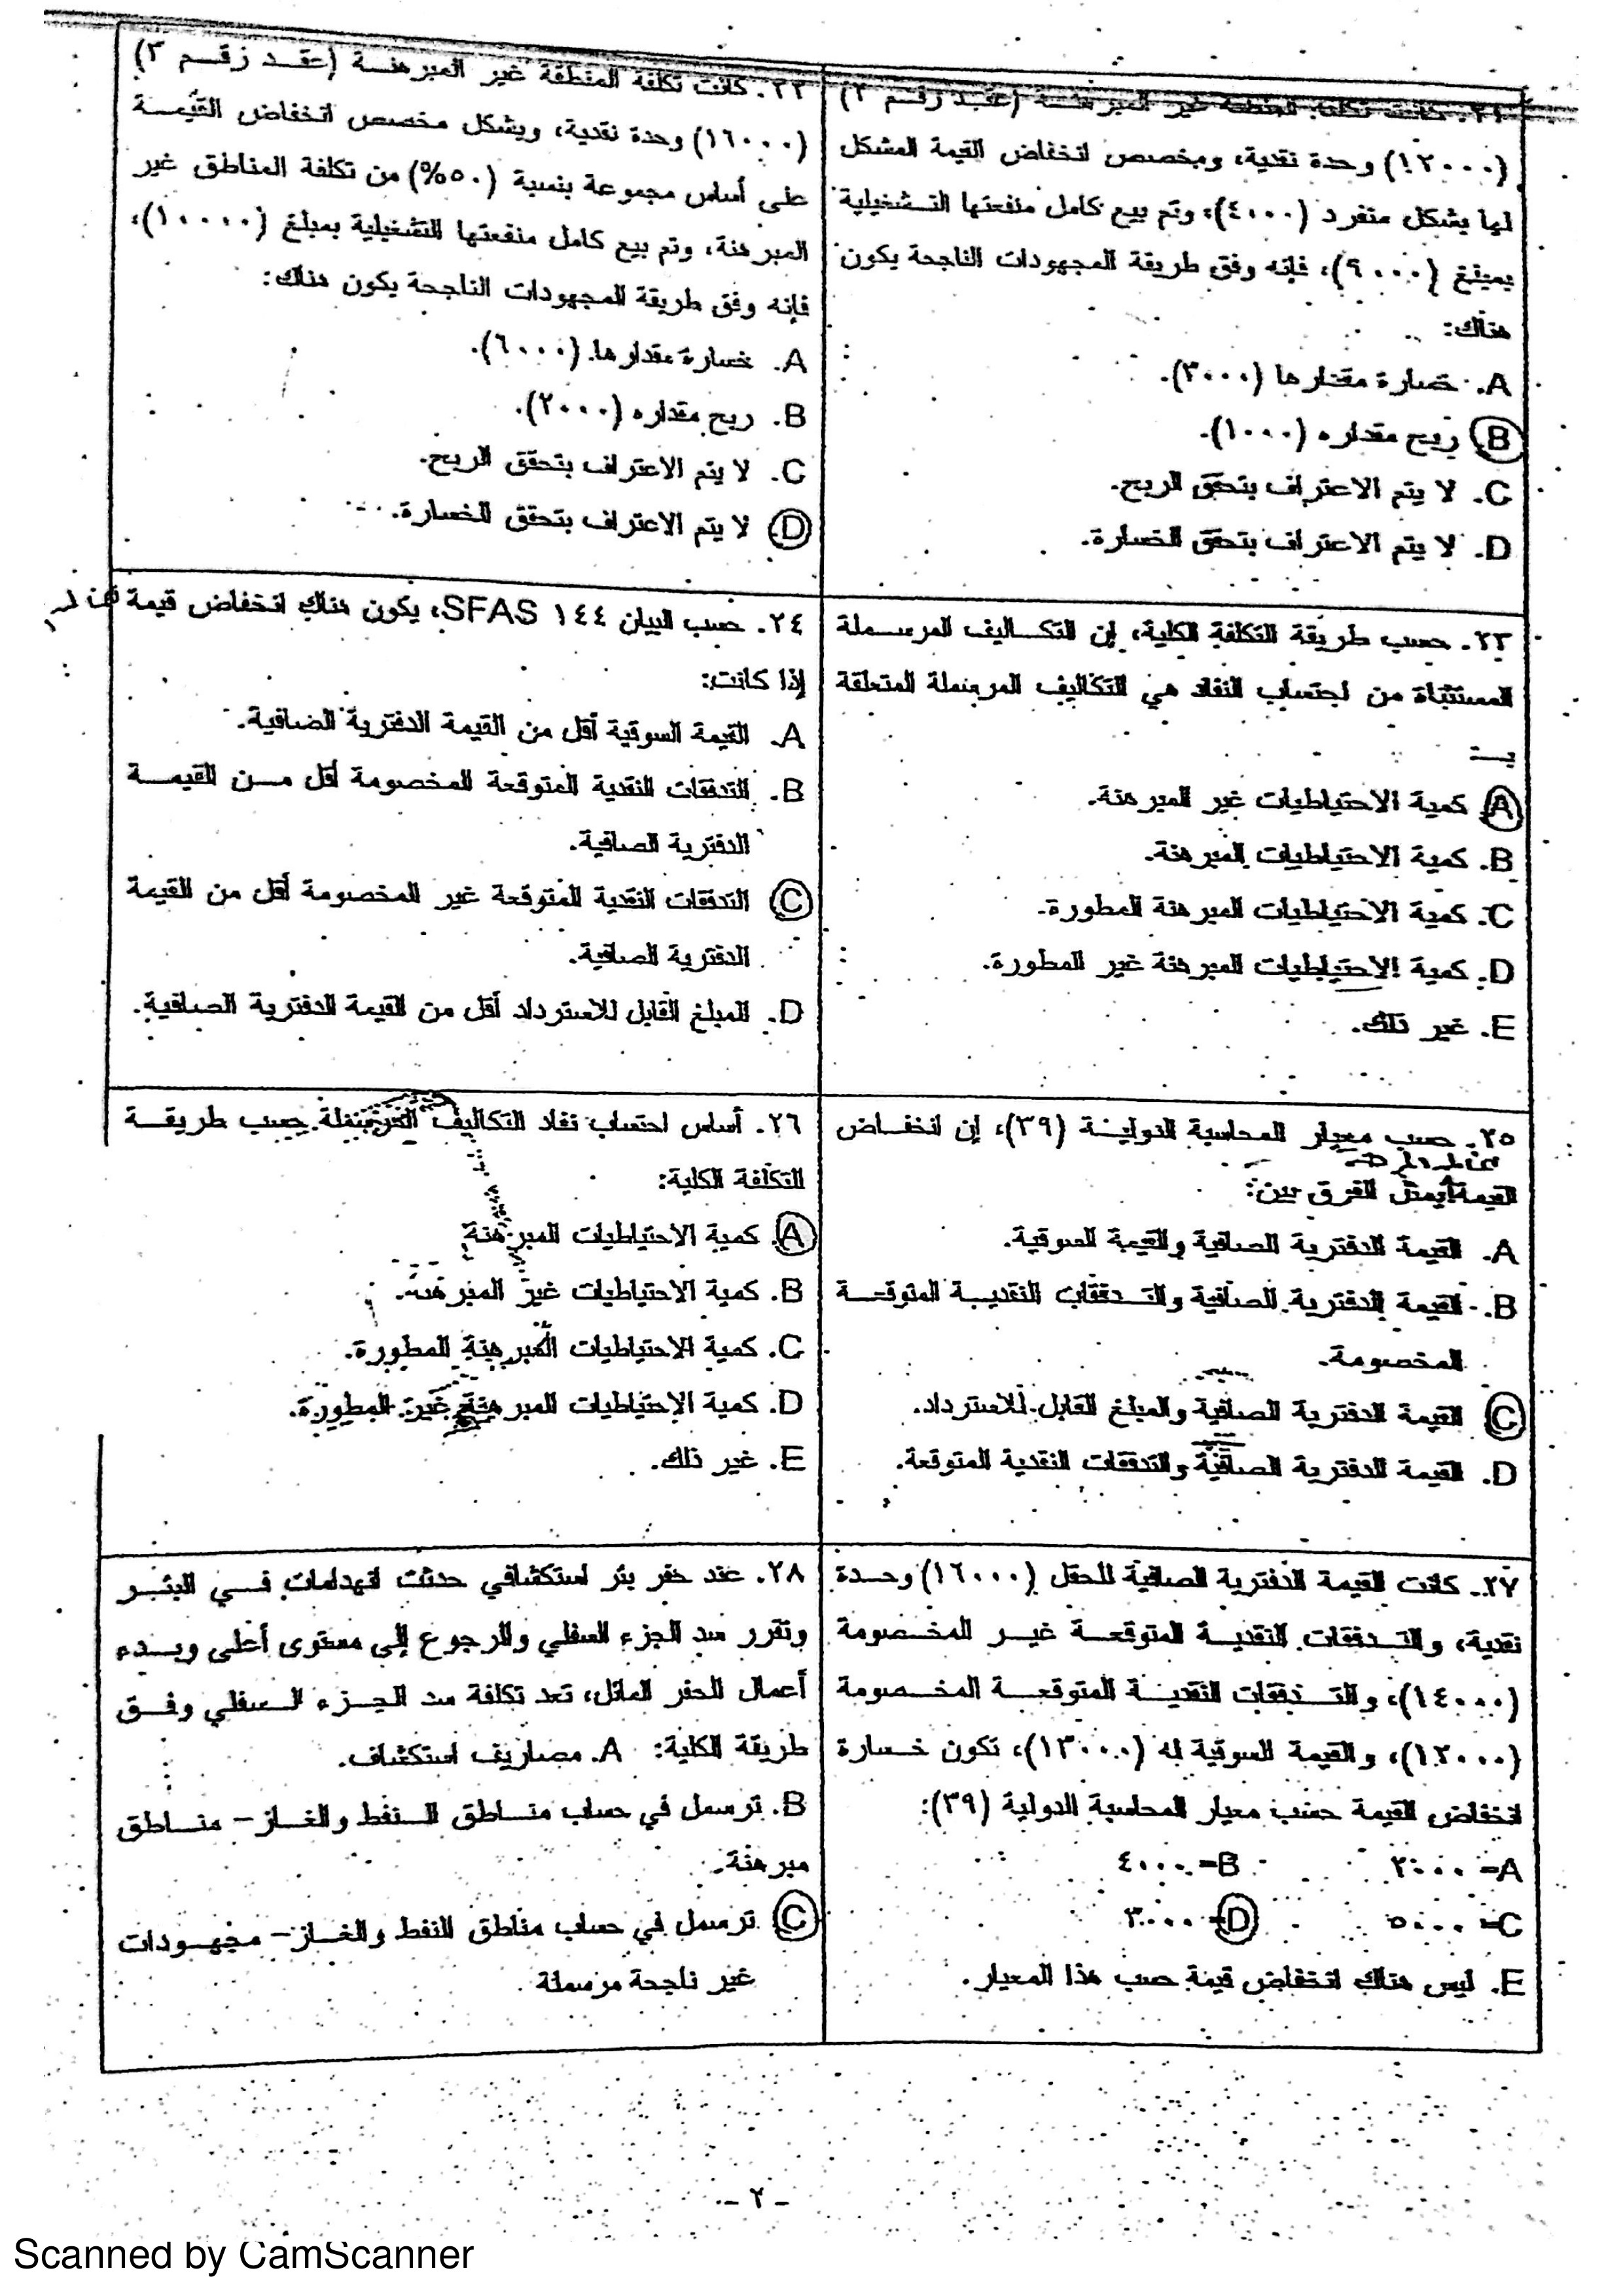 ٢١. كانت تكلفة المنطقة غير المبرهنة (عقد رقم ٢)
(١٢٠٠٠) وحدة نقدية، ومخصص انخفاض القيمة المشكل
لها بشكل منفرد (٤٠٠٠)، وتم بيع كامل منفعتها التشغيلية
بمبلغ (٩٠٠٠)، فإنه وفق طريقة المجهودات الناجحة يكون
هناك:
A. خسارة مقدارها (٣٠٠٠).
B. ربح مقداره (١٠٠٠).
C. لا يتم الاعتراف بتحقق الربح.
D. لا يتم الاعتراف بتحقق الخسارة.
٢٢. كانت تكلفة المنطقة غير المبرهنة (عقد رقم ٣)
(١٦٠٠٠) وحدة نقدية، ويشكل مخصص انخفاض القيمة
على أساس مجموعة بنسبة (٥٠%) من تكلفة المناطق غير
المبرهنة، وتم بيع كامل منفعتها التشغيلية بمبلغ (١٠٠٠٠)،
فإنه وفق طريقة المجهودات الناجحة يكون هناك:
A. خسارة مقدارها (٦٠٠٠).
B. ربح مقداره (٢٠٠٠).
C. لا يتم الاعتراف بتحقق الربح.
D. لا يتم الاعتراف بتحقق الخسارة.
٢٣. حسب طريقة التكلفة الكلية، إن التكاليف المرسملة
المستثناة من احتساب النفاد هي التكاليف المرسملة المتعلقة
بـ:
A. كمية الاحتياطيات غير المبرهنة.
B. كمية الاحتياطيات المبرهنة.
C. كمية الاحتياطيات المبرهنة المطورة.
D. كمية الاحتياطيات المبرهنة غير المطورة.
E. غير ذلك.
٢٤. حسب البيان SFAS ١٤٤، يكون هناك انخفاض قيمة
إذا كانت:
A. القيمة السوقية أقل من القيمة الدفترية الصافية.
B. التدفقات النقدية المتوقعة المخصومة أقل من القيمة
الدفترية الصافية.
C. التدفقات النقدية المتوقعة غير المخصومة أقل من القيمة
الدفترية الصافية.
D. المبلغ القابل للاسترداد أقل من القيمة الدفترية الصافية.
٢٥. حسب معيار المحاسبة الدولية (٣٩)، إن انخفاض
القيمة يمثل الفرق بين:
A. القيمة الدفترية الصافية والقيمة السوقية.
B. القيمة الدفترية الصافية والتدفقات النقدية المتوقعة
المخصومة.
C. القيمة الدفترية الصافية والمبلغ القابل للاسترداد.
D. القيمة الدفترية الصافية والتدفقات النقدية المتوقعة.
٢٦. أساس احتساب نفاد التكاليف المرسملة حسب طريقة
التكلفة الكلية:
A. كمية الاحتياطيات المبرهنة
B. كمية الاحتياطيات غير المبرهنة.
C. كمية الاحتياطيات المبرهنة المطورة.
D. كمية الاحتياطيات المبرهنة غير المطورة.
E. غير ذلك.
٢٧. كانت القيمة الدفترية الصافية للحقل (١٦٠٠٠) وحدة
نقدية، والتدفقات النقدية المتوقعة غير المخصومة
(١٤٠٠٠)، والتدفقات النقدية المتوقعة المخصومة
(١٢٠٠٠)، والقيمة السوقية له (١٣٠٠٠)، تكون خسارة
انخفاض القيمة حسب معيار المحاسبة الدولية (٣٩):
A= ٢٠٠٠ B= ٤٠٠٠
C= ٥٠٠٠ D= ٣٠٠٠
E. ليس هناك انخفاض قيمة حسب هذا المعيار.
٢٨. عند حفر بئر استكشافي حدثت انهدامات في البئر
وتقرر سد الجزء السفلي والرجوع إلى مستوى أعلى وبدء
أعمال الحفر المائل، تعد تكلفة سد الجزء السفلي وفق
طريقة الكلية: A. مصاريف استكشاف.
B. ترسمل في حساب مناطق النفط والغاز- مناطق
مبرهنة.
C. ترسمل في حساب مناطق النفط والغاز- مجهودات
غير ناجحة مرسملة
- ٢ -
Scanned by CamScanner